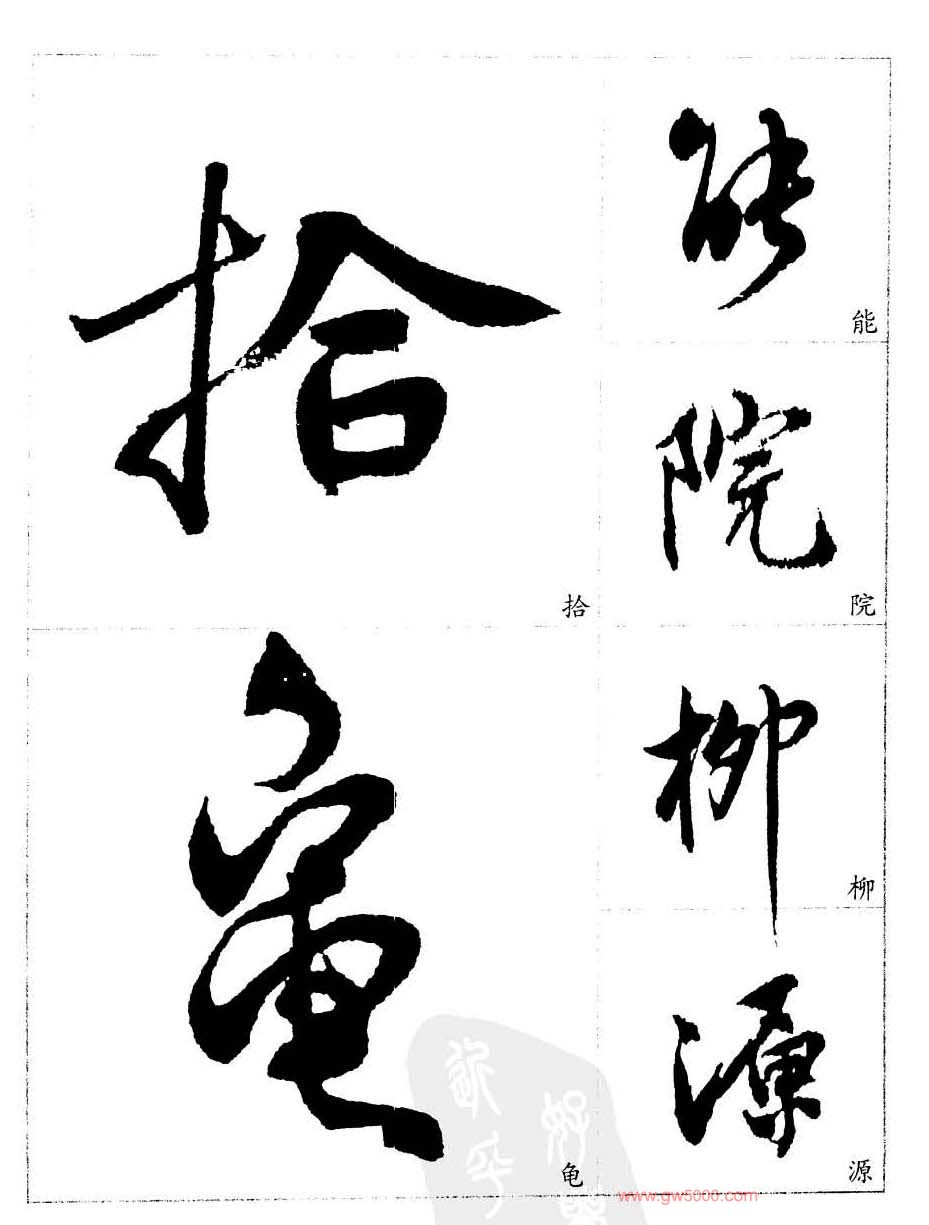 能
能
院
院
柳
柳
源
源
拾
拾
龟
龟
www.gw5000.com